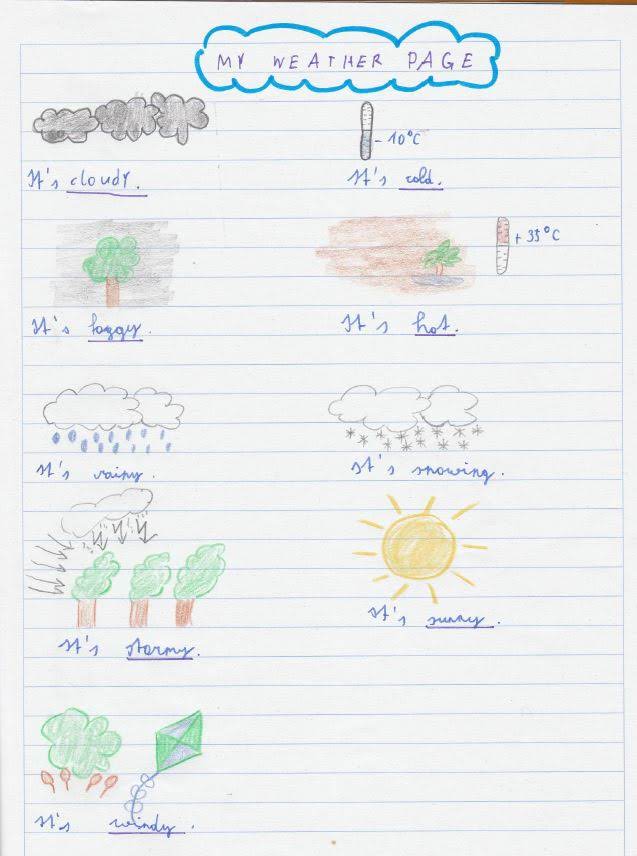 MY WEATHER PAGE
- 10°C
It's cloudy. It's cold.
+ 35°C
It's foggy. It's hot.
It's rainy. It's snowing.
It's sunny.
It's stormy.
It's windy.